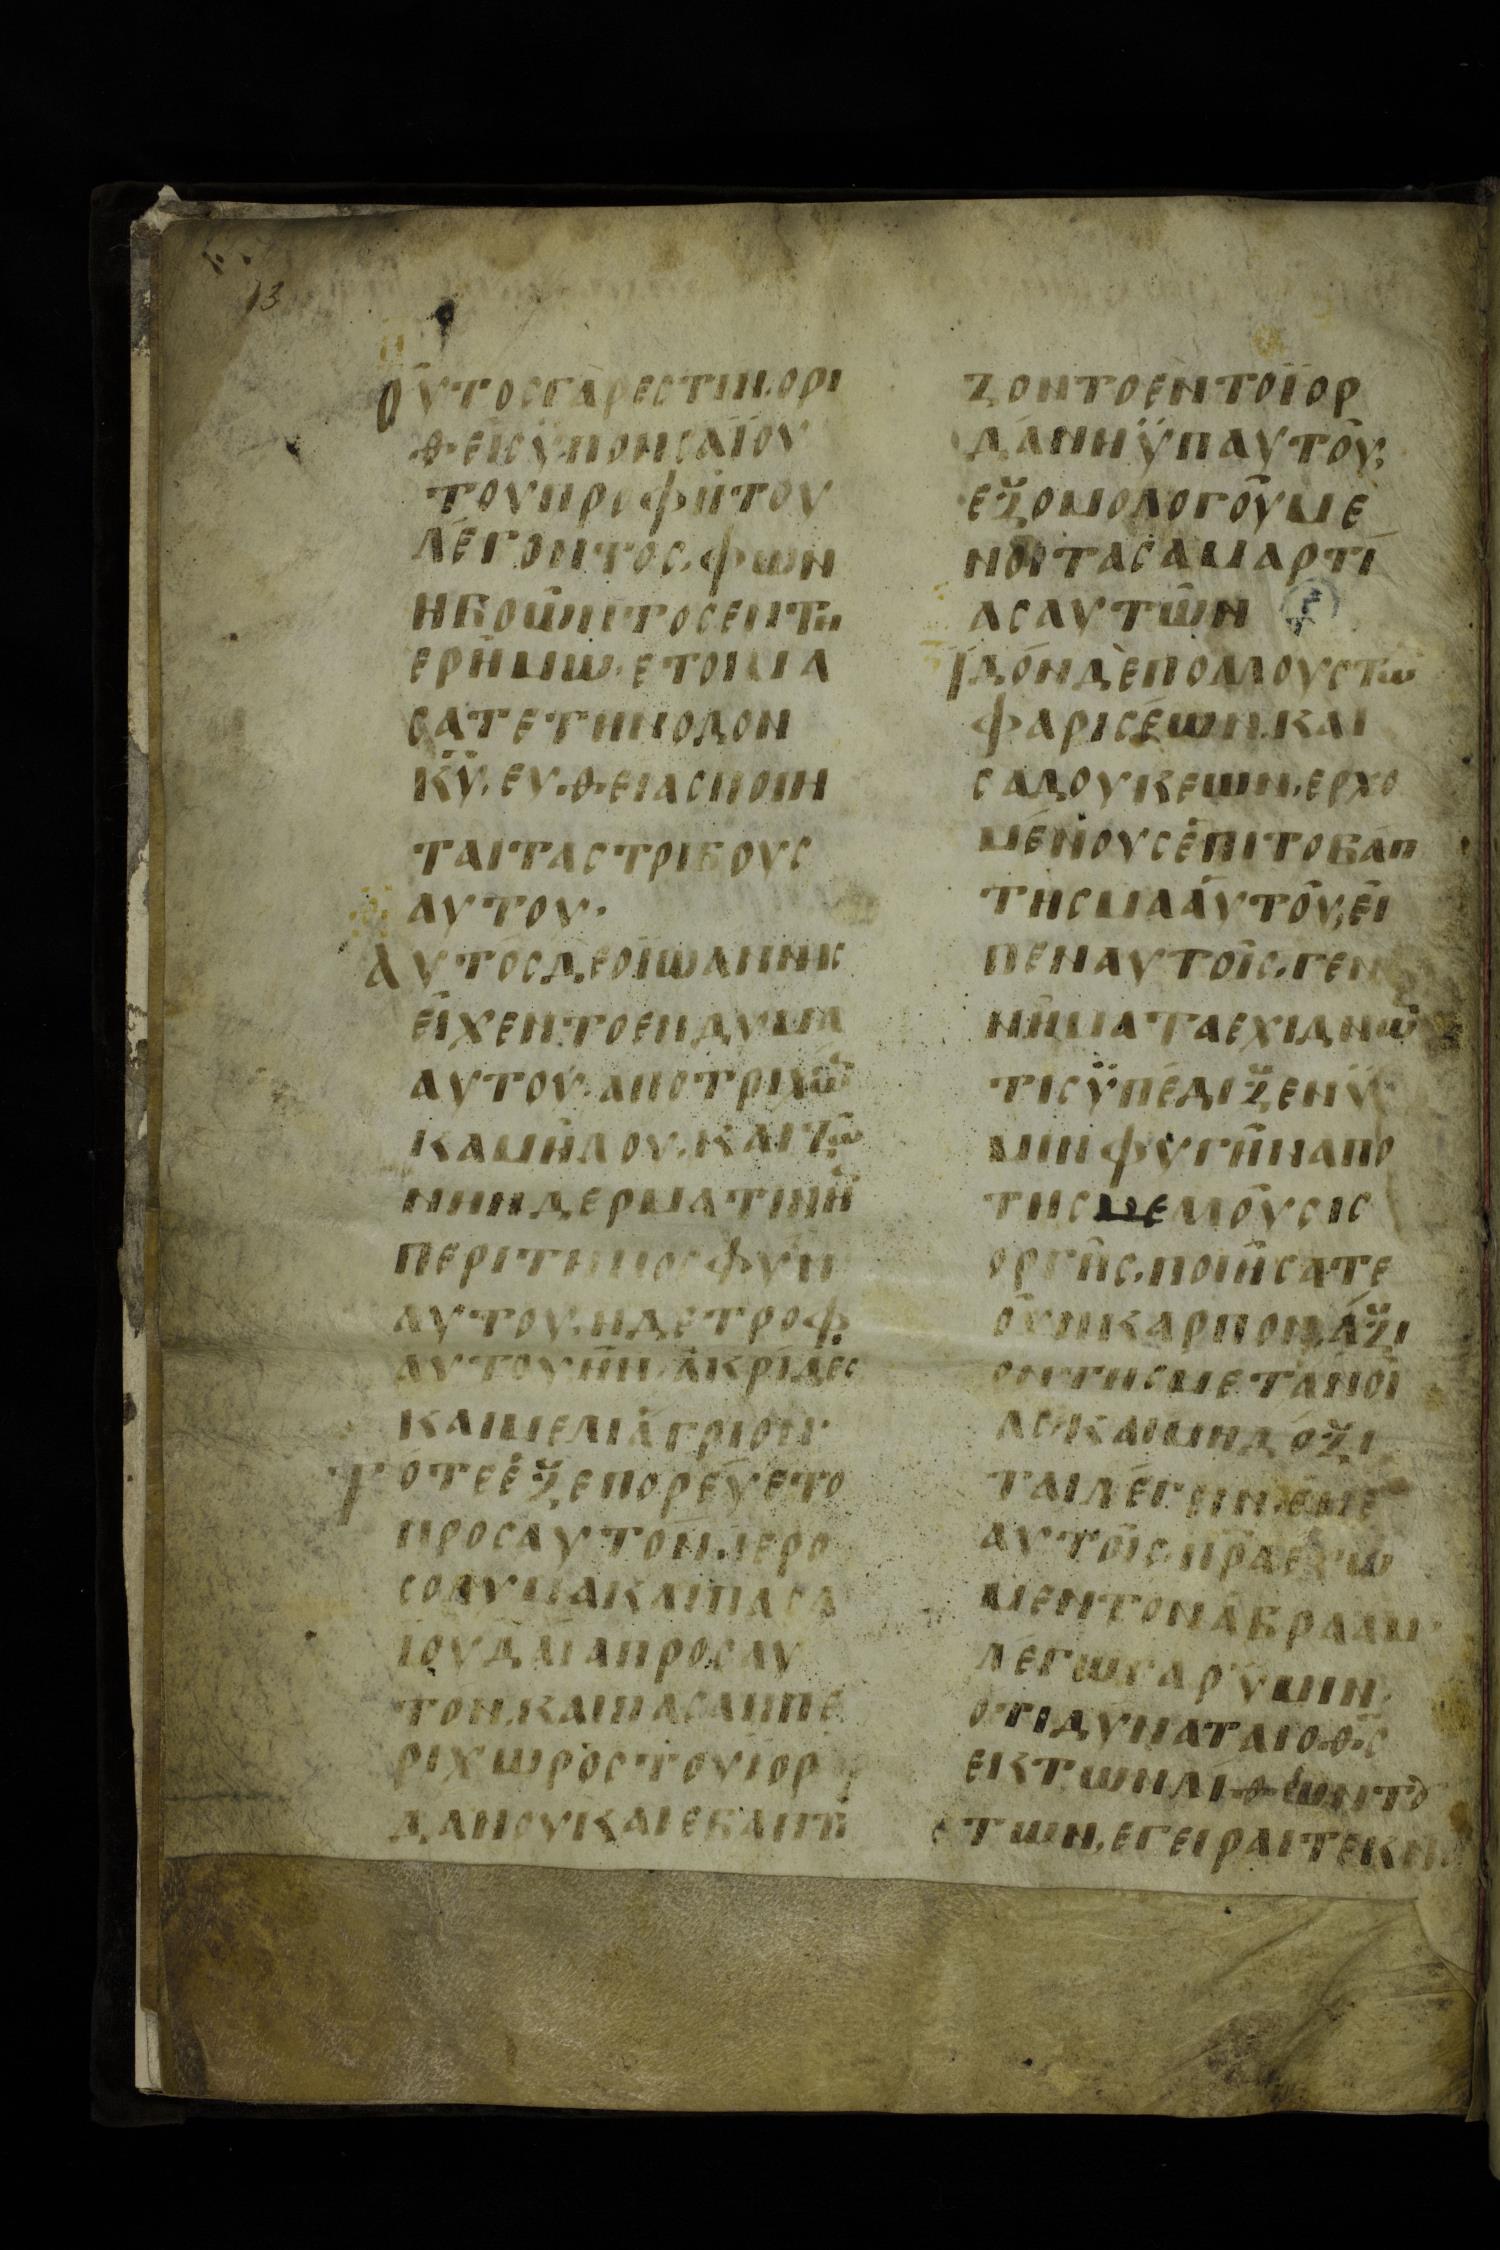 13
Η
ΟΥΤΟΣΓΑΡΕΣΤΙΝ.ΟΡΙ
ΘΕΙΣΫΠΟΗΣΑΪΟΥ
ΤΟΥΠΡΟΦΗΤΟΥ
ΛΕΓΟΝΤΟΣ.ΦΩΝ
ΗΒΟΩΝΤΟΣΕΝΤΗ
ΕΡΗΜΩ.ΕΤΟΙΜΑ
ΣΑΤΕΤΗΝΟΔΟΝ
Κ̅Υ̅.ΕΥΘΕΙΑΣΠΟΙΗ
ΤΑΙΤΑΣΤΡΙΒΟΥΣ
ΑΥΤΟΥ.
ΑΥΤΟΣΔΕΟΪΩΑΝΝΗΣ
ΕΙΧΕΝΤΟΕΝΔΥΜΑ
ΑΥΤΟΥ.ΑΠΟΤΡΙΧΩ̅
ΚΑΜΗΛΟΥ.ΚΑΙΖΩ
ΝΗΝΔΕΡΜΑΤΙΝΗ̅
ΠΕΡΙΤΗΝΟΣΦΥΝ
ΑΥΤΟΥ.ΗΔΕΤΡΟΦ
ΑΥΤΟΥΗΝ.ΑΚΡΙΔΕΣ
ΚΑΙΜΕΛΙΑΓΡΙΟΝ.
ΤΟΤΕΕΞΕΠΟΡΕΥΕΤΟ
ΠΡΟΣΑΥΤΟΝ.ΙΕΡΟ
ΣΟΛΥΜΑΚΑΙΠΑΣΑ
ΪΟΥΔΑΙΑΠΡΟΣΑΥ
ΤΟΝ.ΚΑΙΠΑΣΑΗΠΕ
ΡΙΧΩΡΟΣΤΟΥΪΟΡ
ΔΑΝΟΥΚΑΙΕΒΑΠΤΗ
ΖΟΝΤΟΕΝΤΟΪΟΡ
ΔΑΝΗΫΠΑΥΤΟΥ,
ΕΞΟΜΟΛΟΓΟΥΜΕ
ΝΟΙΤΑΣΑΜΑΡΤΙ
ΑΣΑΥΤΩΝ
ΪΔΟΝΔΕΠΟΛΛΟΥΣΤΩ
ΦΑΡΙΣΕΩΝ.ΚΑΙ
ΣΑΔΟΥΚΕΩΝ.ΕΡΧΟ
ΜΕΝΟΥΣΕΠΙΤΟΒΑΠ
ΤΗΣΜΑΑΥΤΟΥ,ΕΙ
ΠΕΝΑΥΤΟΙΣ.ΓΕΝ
ΝΗΜΑΤΑΕΧΙΔΝΩ̅
ΤΙΣΫΠΕΔΙΞΕΝΫ
ΜΙΝΦΥΓΗΝΑΠΟ
ΤΗΣΜΕΛΛΟΥΣΙΣ
ΟΡΓΗΣ.ΠΟΙΗΣΑΤΕ
ΟΥΝΚΑΡΠΟΝΑΞΙ
ΟΝΤΗΣΜΕΤΑΝΟΙ
ΑΣ.ΚΑΙΜΗΔΟΞΙ
ΤΑΙΛΕΓΕΙΝ.
ΑΥΤΟΙΣ.Π̅Ρ̅ΑΕΧΩ
ΜΕΝΤΟΝΑΒΡΑΑΜ.
ΛΕΓΩΓΑΡΫΜΙΝ.
ΟΤΙΔΥΝΑΤΑΙΟΘ̅Σ̅
ΕΚΤΩΝΛΙΘΩΝΤΟ
ΤΩΝ.ΕΓΕΙΡΑΙΤΕΚΝΑ